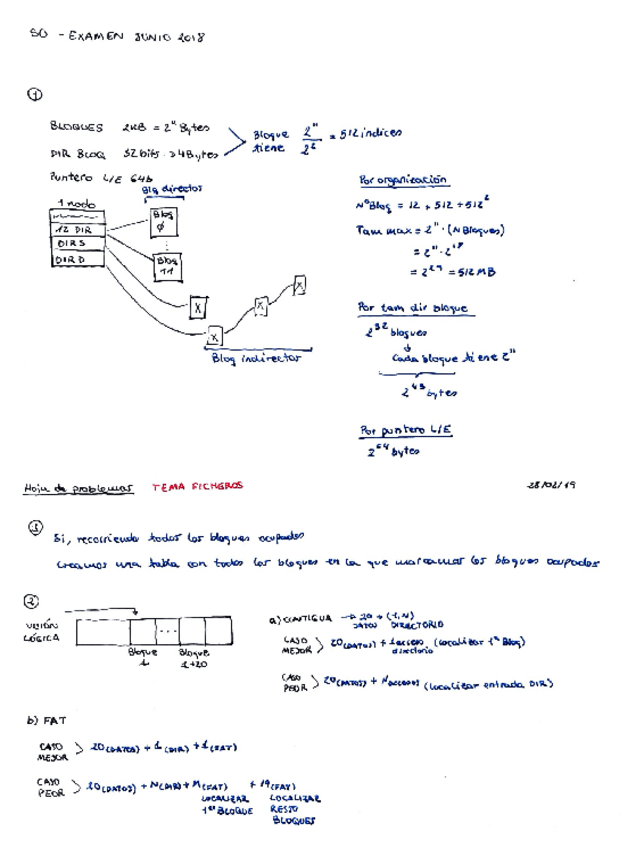 SO - EXAMEN JUNIO 2018
①
BLOQUES 2KB = 2¹¹ Bytes
DIR BLOQ 32 bits → 4 Bytes
Bloque tiene 2¹¹/2² = 512 índices
Puntero L/E 64b
Blq directos
1 nodo
12 DIR
DIR S
DIR D
Bloq 0
Bloq 11
X
X X X
Bloq indirectos
Por organización
Nº Bloq = 12 + 512 + 512²
Tam max = 2¹¹ · (N Bloques)
= 2¹¹ · 2¹⁸
= 2²⁹ = 512 MB
Por tam dir bloque
2³² bloques
Cada bloque tiene 2¹¹
2⁴³ bytes
Por puntero L/E
2⁶⁴ bytes
Hoja de problemas TEMA FICHEROS 28/02/19
Si, recorriendo todos los bloques ocupados
Creamos una tabla con todos los bloques en la que marcamos los bloques ocupados
②
VISIÓN LÓGICA
...
Bloque 1
Bloque 1+20
a) CONTIGUA → 20 + (1,N)
DATOS DIRECTORIO
CASO MEJOR > 20 (DATOS) + 1 acceso directorio (Localizar 1er Bloq)
CASO PEOR > 20 (DATOS) + N accesos (Localizar entrada DIR)
b) FAT
CASO MEJOR > 20 (DATOS) + 1 (DIR) + 1 (FAT)
CASO PEOR > 20 (DATOS) + N (DIR) + M (FAT) + 19 (FAT)
LOCALIZAR LOCALIZAR
1er BLOQUE RESTO
BLOQUES